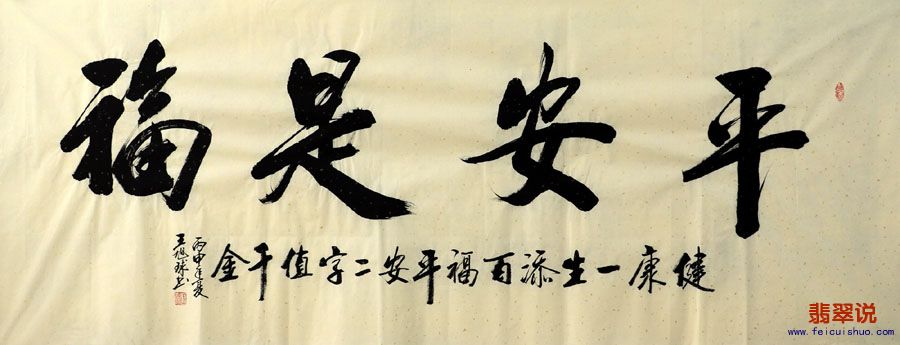 平安是福
健康一生添百福平安二字值千金
丙申年夏
王旭球书
翡翠说
www.feicuishuo.com